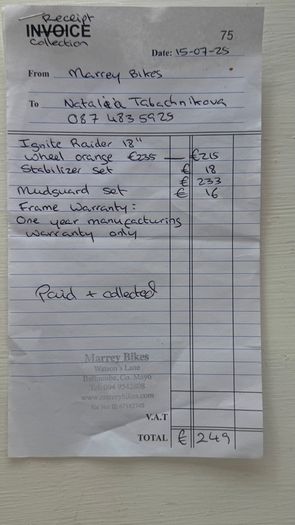 Receipt
INVOICE
Collection
75
Date: 15-07-25
From Marrey Bikes
To Natalia Tabachnikova
087 4835925
Ignite Raider 18"
wheel orange €235 — €215
Stabilizer set € 18
€ 233
Mudguard set € 16
Frame Warranty:
One year manufacturing
warranty only
Paid + collected
Marrey Bikes
Watson's Lane
Ballinrobe, Co. Mayo
Tel: 094 9542808
www.marreybikes.com
V.A.T
TOTAL € 249